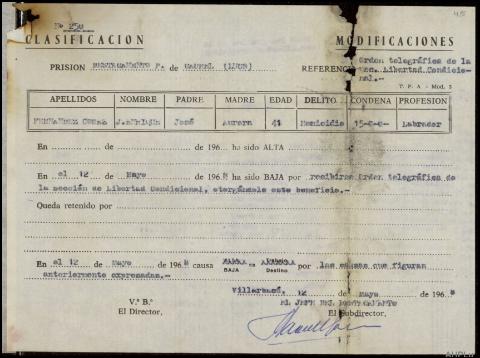 Nº 250
CLASIFICACION MODIFICACIONES
PRISION DESTACAMENTO P. de (LEON) REFERENCE Orden telegráfica de la
Sec. Libertad Condicio-
nal.-
T. P. A - Mod. 3
APELLIDOS NOMBRE PADRE MADRE EDAD DELITO CONDENA PROFESION
FERNANDEZ José Aurora 41 Homicidio 15-0-0- Labrador
En de de 196 ha sido ALTA
En el 12 de Mayo de 196 ha sido BAJA por recibirse Orden telegráfica de
la sección de Libertad Condicional, otorgándole este beneficio.-
Queda retenido por
En el 12 de Mayo de 196 causa BAJA en Destino por las causas que figuran
anteriormente expresadas.-
12 de Mayo de 196
V.º B.º EL JEFE DEL DESTACAMENTO
El Director, El Subdirector,